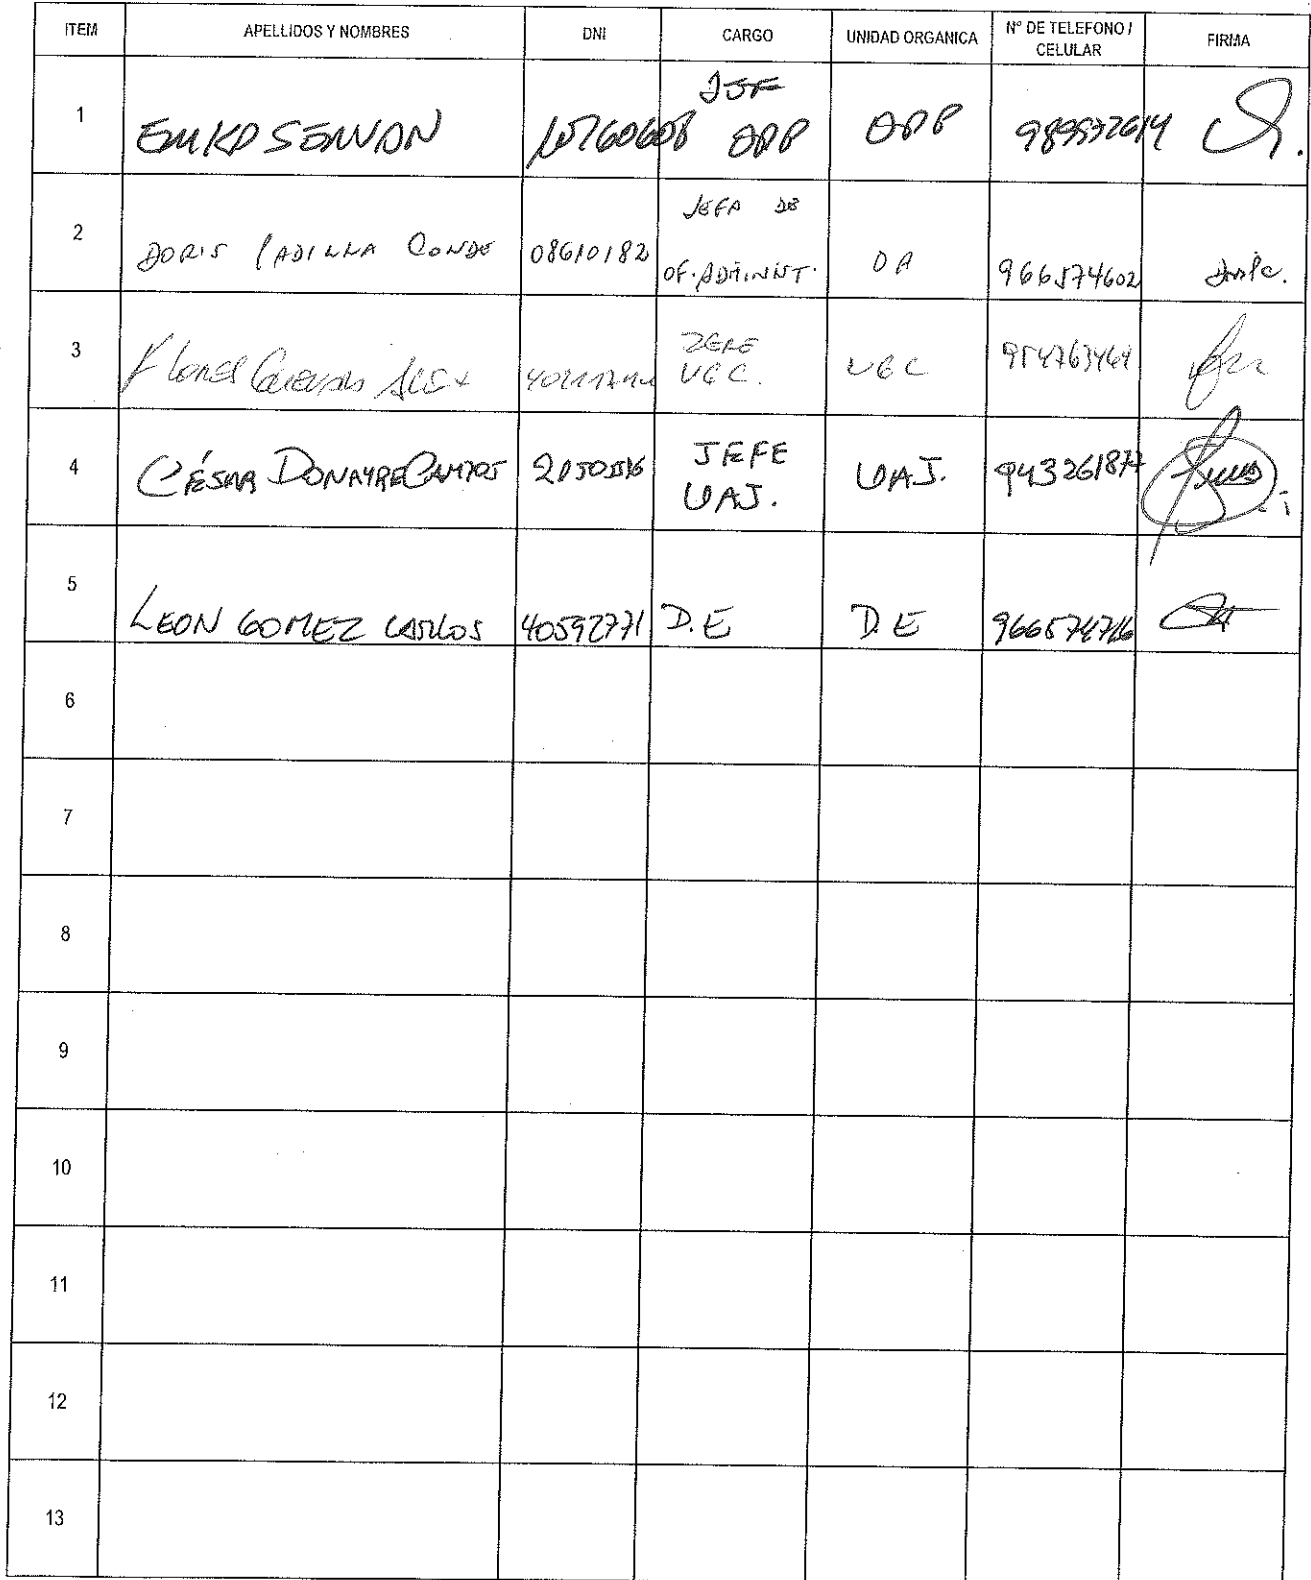 ITEM APELLIDOS Y NOMBRES DNI CARGO UNIDAD ORGANICA Nº DE TELEFONO / CELULAR FIRMA
1 JEF
OPP OPP
2 DORIS PADILLA CONDE 08610182 JEFA DE OF. ADMINIST. OA 966574602
3 Flores Alex JEFE UGC. UGC 954763464
4 CÉSAR DONAYRE JEFE UAJ. UAJ. 943261877
5 LEON GOMEZ CARLOS 40592771 D.E D.E 966574716
6
7
8
9
10
11
12
13